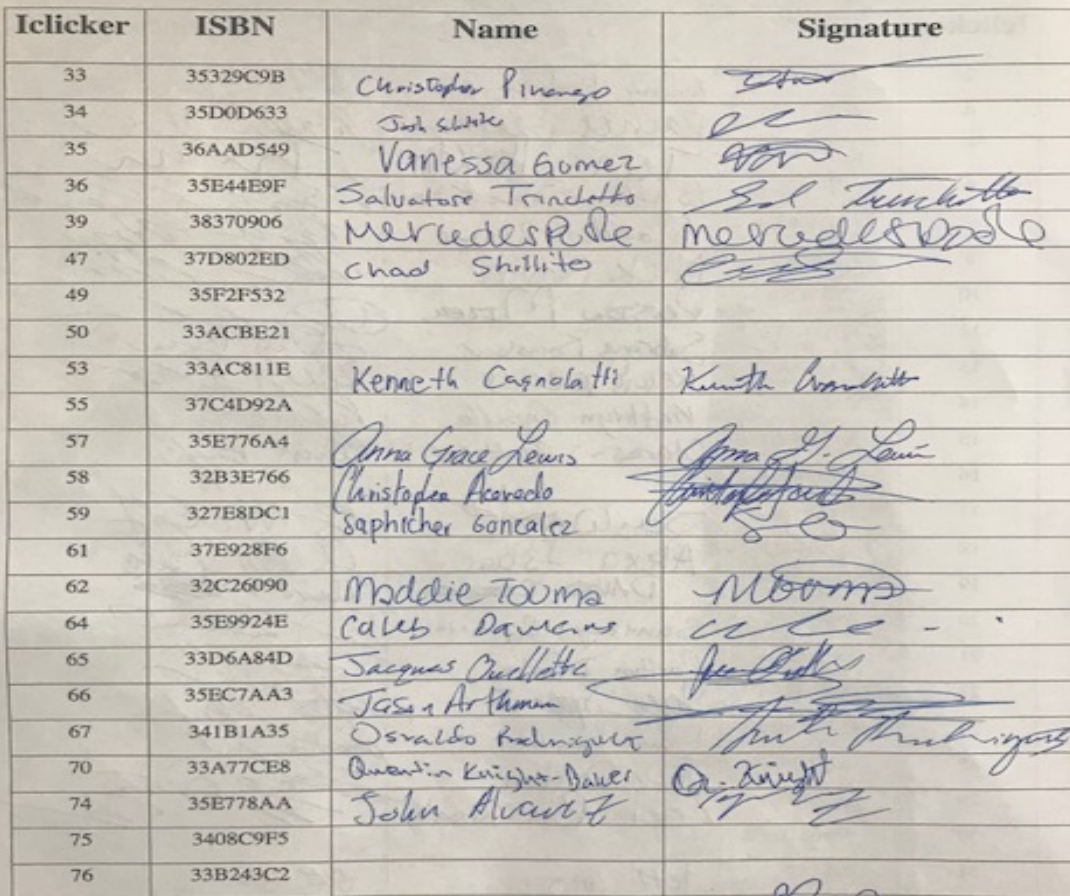 Iclicker ISBN Name Signature
33 35329C9B Christopher Pinango
34 35D0D633 Josh
35 36AAD549 Vanessa Gomez
36 35E44E9F Salvatore Trinchitto Sal Trinchitto
39 38370906 Mercedes Poole mercedes poole
47 37D802ED Chad Shillito
49 35F2F532
50 33ACBE21
53 33AC811E Kenneth Cagnolatti Kenneth
55 37C4D92A
57 35E776A4 Anna Grace Lewis Anna G. Lewis
58 32B3E766 Christopher Acevedo
59 327E8DC1 Saphicher Gonzalez
61 37E928F6
62 32C26090 Maddie Touma MTouma
64 35E9924E Caleb
65 33D6A84D Jacques Ouellette
66 35EC7AA3 Jason Arthman
67 341B1A35 Osvaldo Rodriguez Rodriguez
70 33A77CE8 Quentin Knight-Baker Q. Knight
74 35E778AA John Alvarez
75 3408C9F5
76 33B243C2